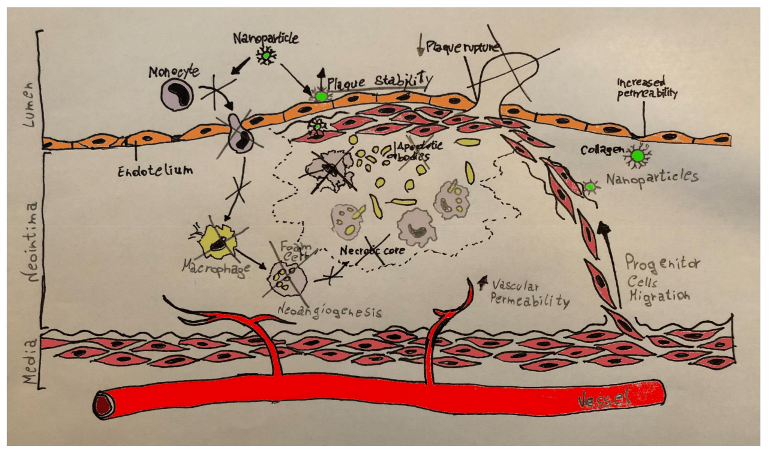 Nanoparticle
Plaque rupture
Monocyte
Plaque Stability
Increased
permeability
Lumen
Endotelium
Apoptotic
bodies
Collagen
Nanoparticles
Neointima
Macrophage
Foam
Cell
Necrotic core
Progenitor
Cells
Migration
Vascular
Permeability
Neoangiogenesis
Media
Vessel